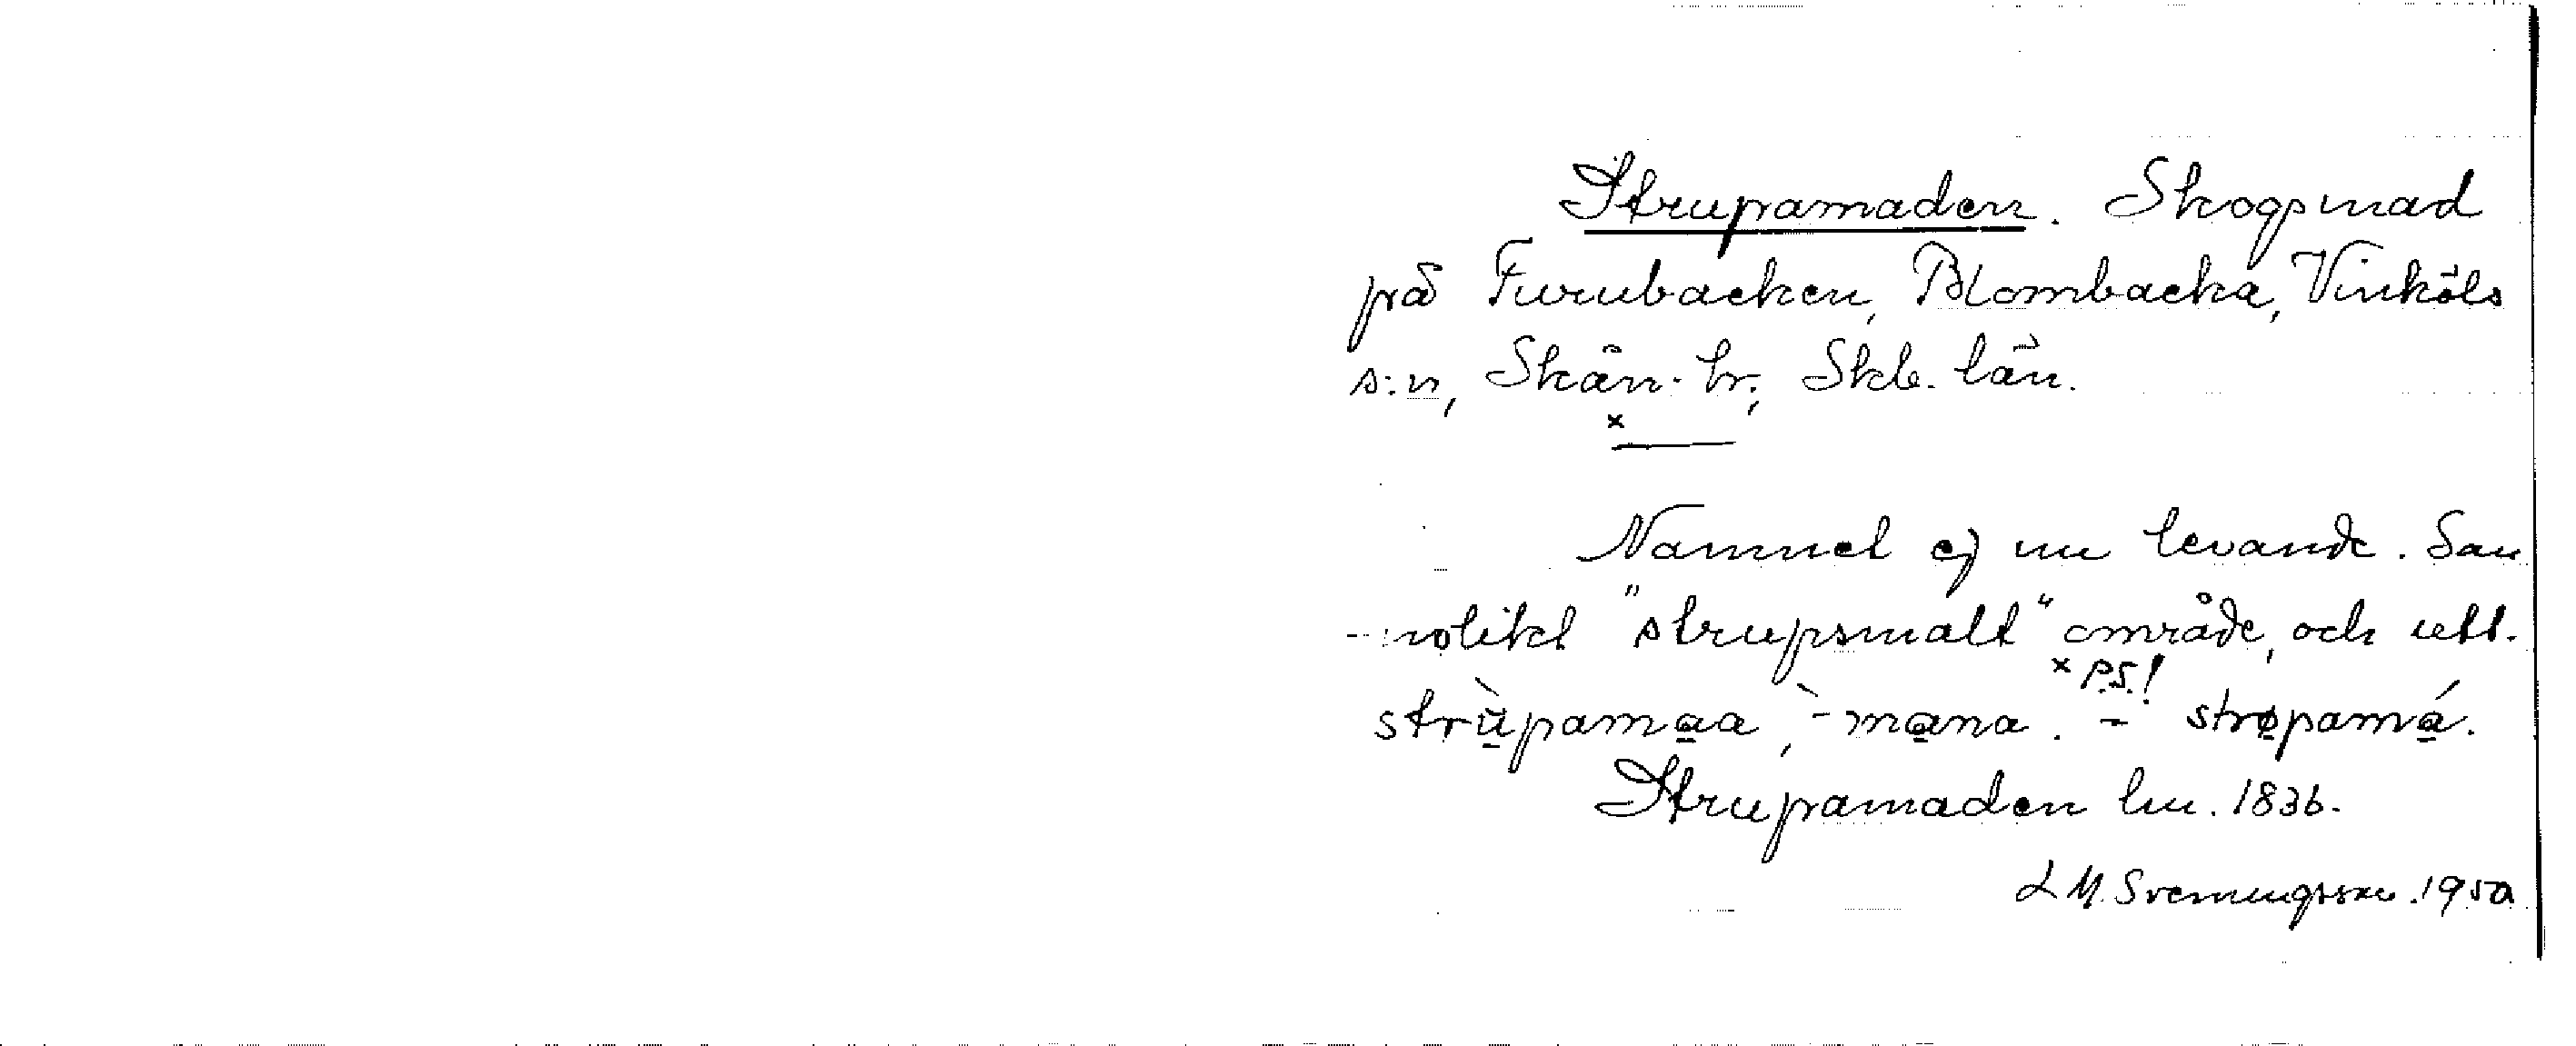 Strupamaden. Skogsmad
på Furubacken, Blombacka, Vinköls
s:n, Skån. hr., Skb. län.
x
Namnet ej nu levande. San
nolikt "strupsmalt" område, och utt.
x P.S.!
strùpamaa, -màna. - strøpamá.
Strupamaden lm. 1836.
L M. Svenungsson. 1950